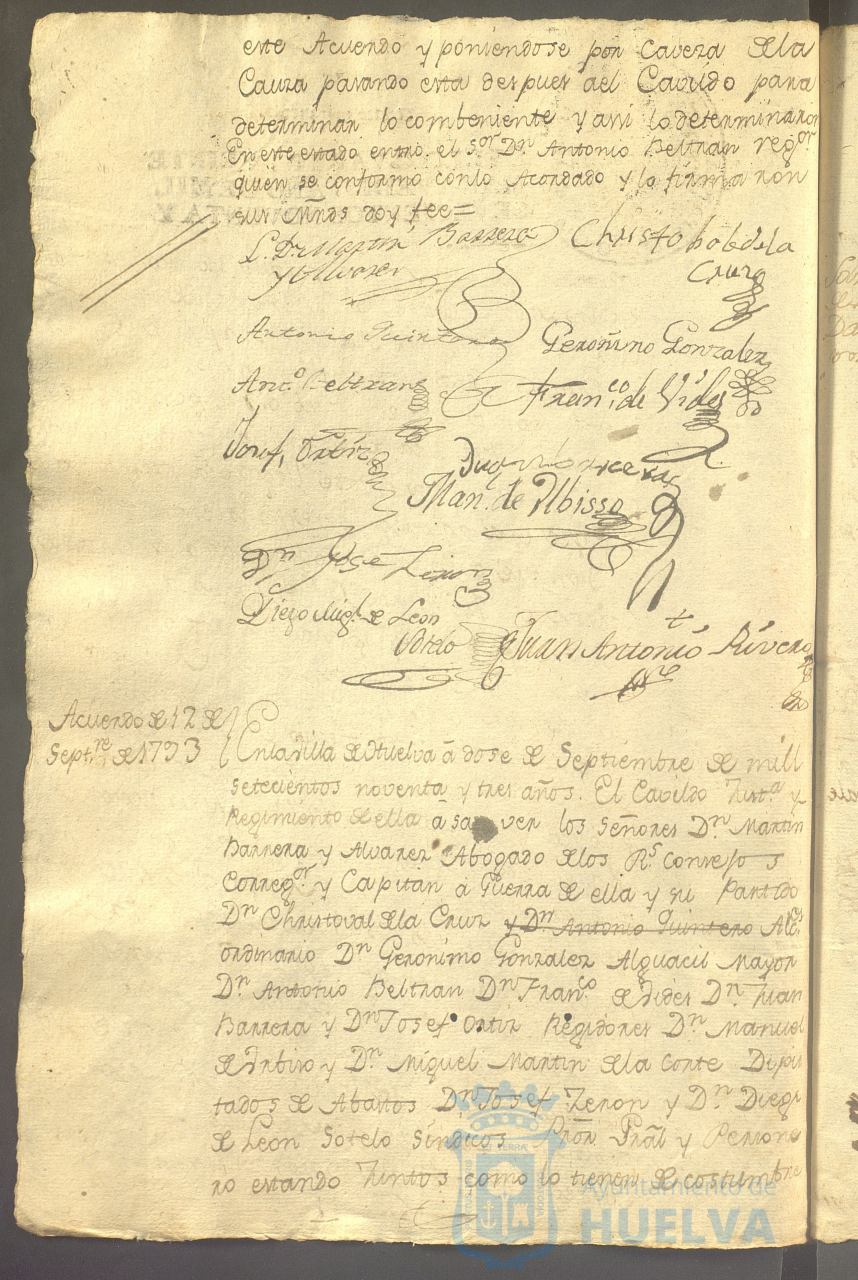 este Acuerdo y poniendose por Caveza de la
Causa pasando esta despues al Cavildo para
determinar lo combeniente y assi lo determinaron
En este estado entró el Sor. Dn. Antonio Beltran regor.
quien se conformo con lo Acordado y lo firmaron
sus Mrds doy fee=
L. Dn. Martin Barrera
y Alvarez
Christobal de la
Cruz
Antonio Quintero
Geronimo Gonzalez
Anto. Beltran
Franco. de Vides
Josef Ortiz
Juan Barrera
Man. de Ubisso
Dn. Jose Zeron
Diego Migl. de Leon
Sotelo
Juan Antonio Rivero
Acuerdo de 12 de
Septre. de 1793
En la Villa de Huelva á dose de Septiembre de mill
setecientos noventa y tres años. El Cavildo Justa. y
Regimiento de ella á saver los señores Dn. Martin
Barrera y Alvarez Abogado de los Rs. Consejos
Corregor. y Capitan á Guerra de ella y su Partido
Dn. Christoval de la Cruz y Dn Antonio Quintero Alces.
ordinario Dn Geronimo Gonzalez Alguacil Mayor
Dn. Antonio Beltran Dn Franco. de Vides Dn. Juan
Barrera y Dn Josef Ortiz Regidores Dn. Manuel
de Urbiso y Dn. Miguel Martin de la Corte Dipu
tados de Abastos Dn Josef Zeron y Dn. Diego
de Leon Sotelo Sindicos Pror. Gral y Persone
ro estando Juntos como lo tienen de costumbre
Ayuntamiento de
HUELVA